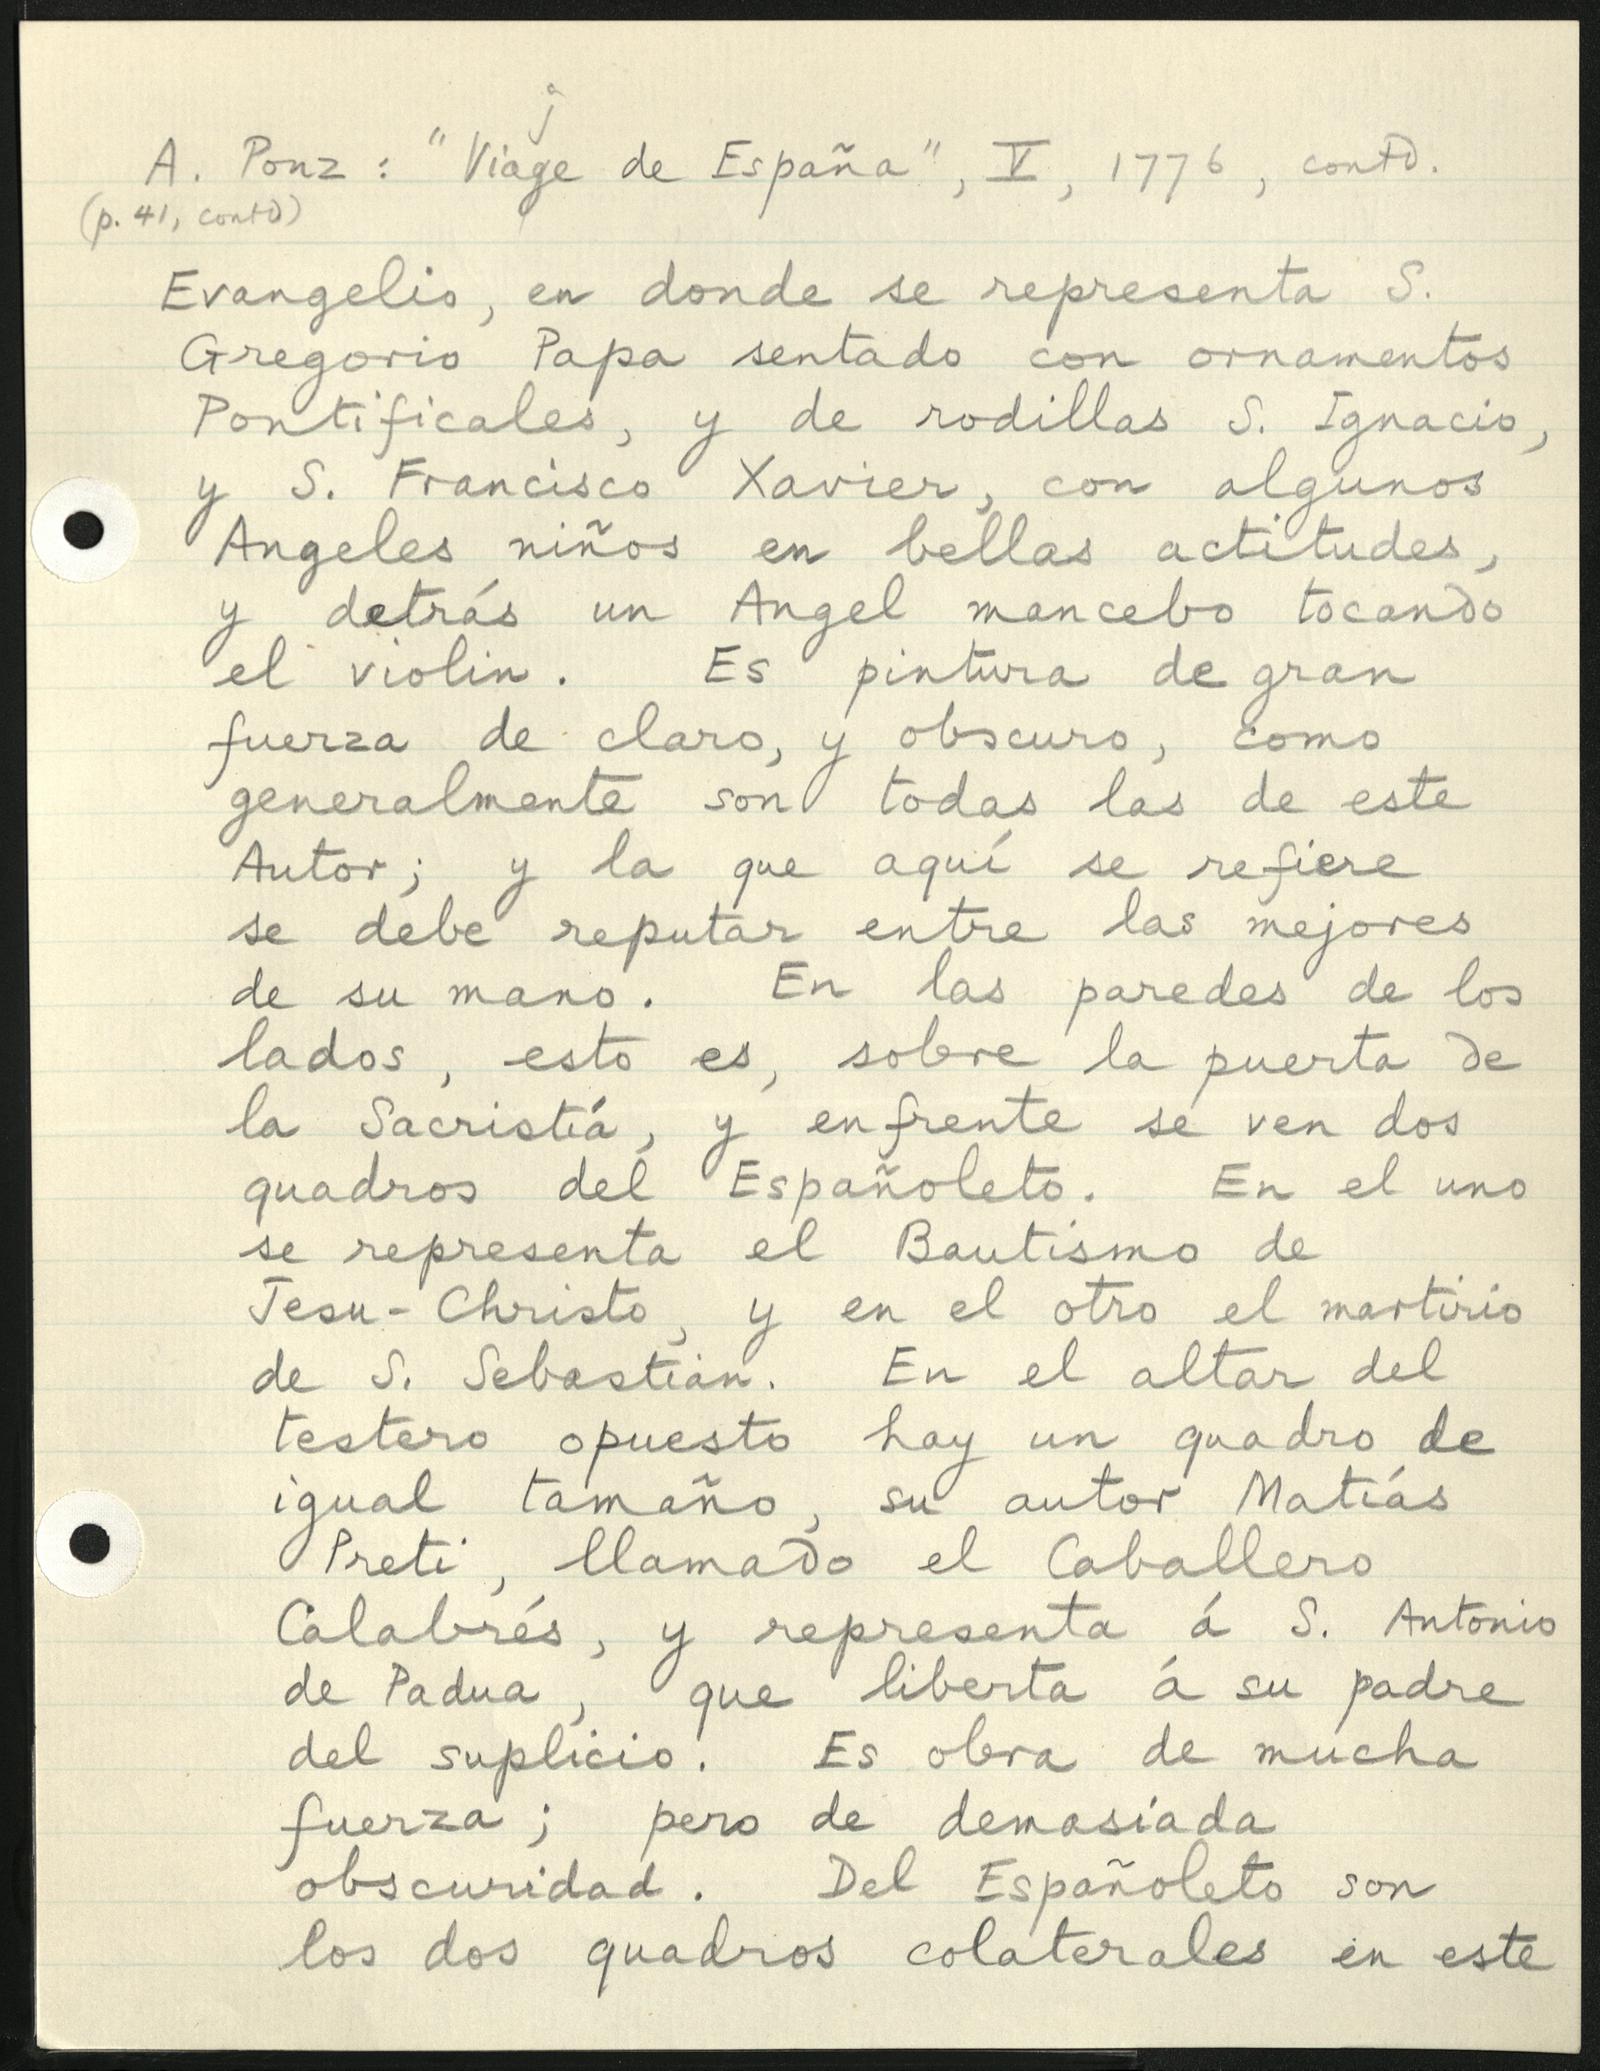 j
A. Ponz : "Viage de España", V, 1776, contd.
(p. 41, contd)
Evangelio, en donde se representa S.
Gregorio Papa sentado con ornamentos
Pontificales, y de rodillas S. Ignacio,
y S. Francisco Xavier, con algunos
Angeles niños en bellas actitudes,
y detrás un Angel mancebo tocando
el violin. Es pintura de gran
fuerza de claro, y obscuro, como
generalmente son todas las de este
Autor; y la que aquí se refiere
se debe reputar entre las mejores
de su mano. En las paredes de los
lados, esto es, sobre la puerta de
la Sacristiá, y enfrente se ven dos
quadros del Españoleto. En el uno
se representa el Bautismo de
Jesu-Christo, y en el otro el martirio
de S. Sebastian. En el altar del
testero opuesto hay un quadro de
igual tamaño, su autor Matiás
Preti, llamado el Caballero
Calabrés, y representa á S. Antonio
de Padua, que liberta á su padre
del suplicio. Es obra de mucha
fuerza; pero de demasiada
obscuridad. Del Españoleto son
los dos quadros colaterales en este